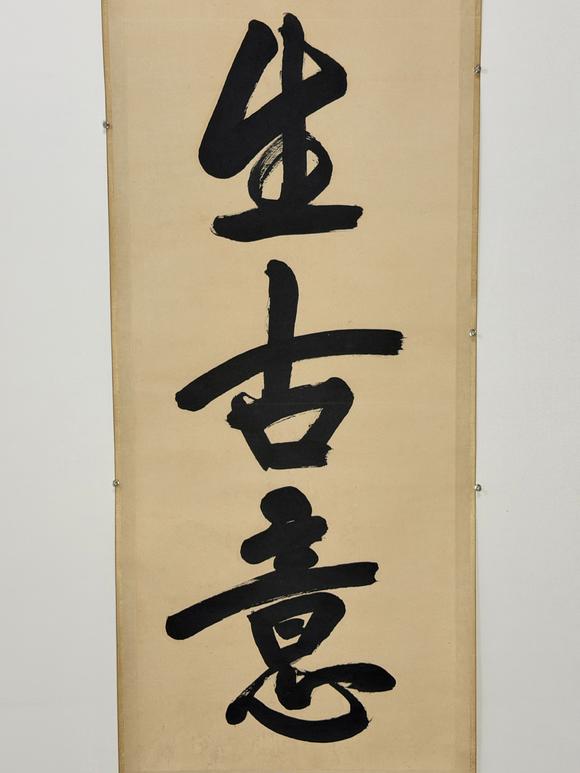 生古意